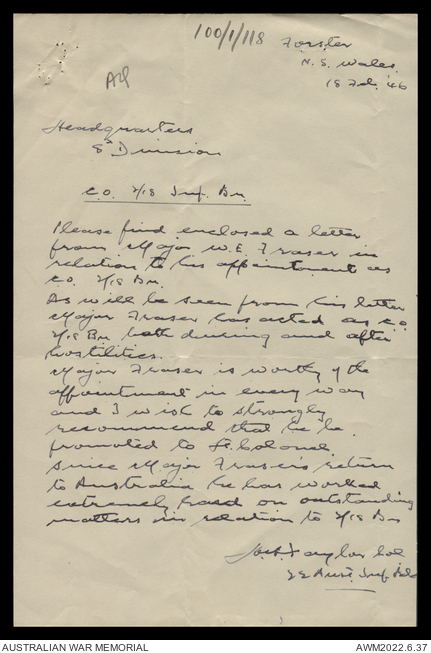 100/1/118
Forster
N. S. Wales.
18 Feb. '46
Headquarters
8th Division
C.O. 2/18 Inf. Bn.
Please find enclosed a letter
from Major W.E. Fraser in
relation to his appointment as
C.O. 2/18 Bn.
As will be seen from his letter
Major Fraser has acted as C.O.
2/18 Bn both during and after
hostilities.
Major Fraser is worthy of the
appointment in every way
and I wish to strongly
recommend that he be
promoted to Lt. Colonel.
Since Major Fraser's return
to Australia he has worked
extremely hard on outstanding
matters in relation to 2/18 Bn
Taylor Col
22 Aust. Inf. Bde
AUSTRALIAN WAR MEMORIAL
AWM2022.6.37